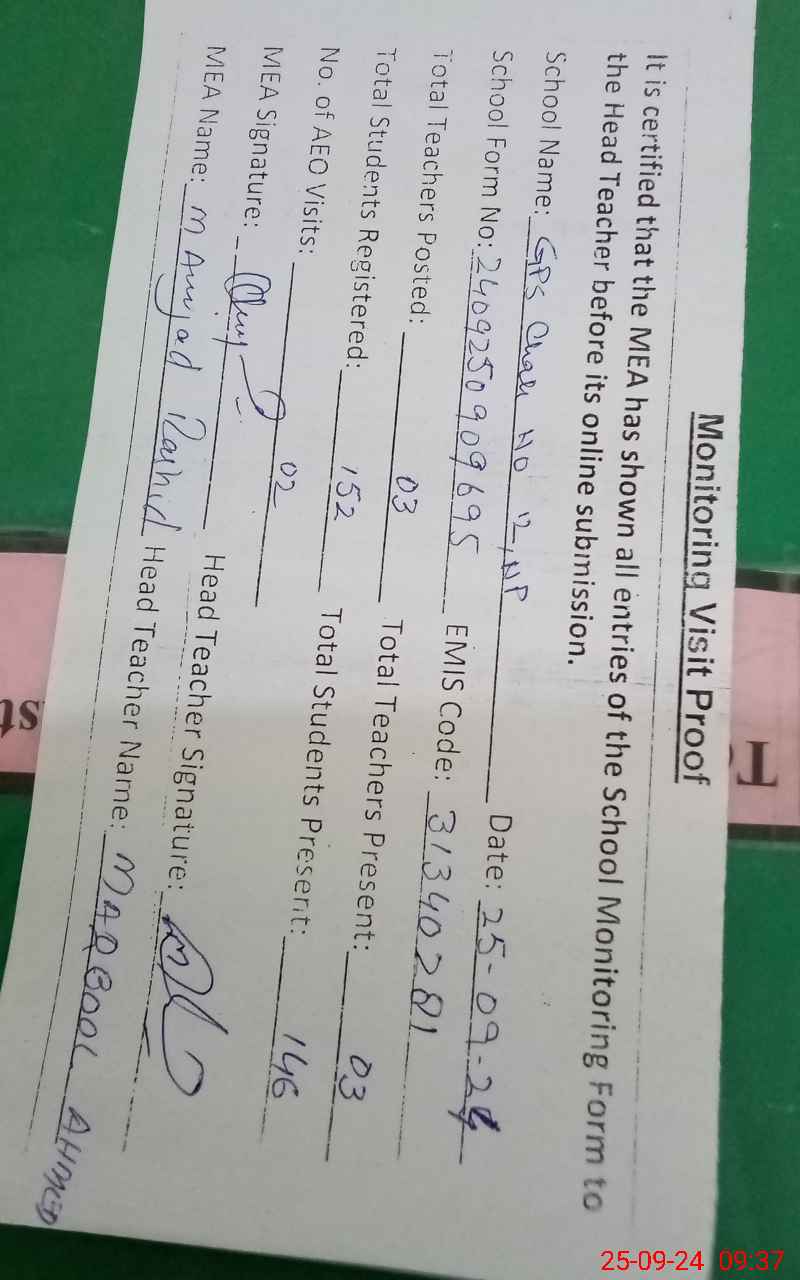 Monitoring Visit Proof
It is certified that the MEA has shown all entries of the School Monitoring Form to
the Head Teacher before its online submission.
School Name: GPS Chak No 12, NP Date: 25-09-24
School Form No: 2409250909695 EMIS Code: 31340281
Total Teachers Posted: 03 Total Teachers Present: 03
Total Students Registered: 152 Total Students Present: 146
No. of AEO Visits: 02
MEA Signature: Head Teacher Signature:
MEA Name: M Amjad Rashid Head Teacher Name: MAQBOOL AHMED
25-09-24 09:37